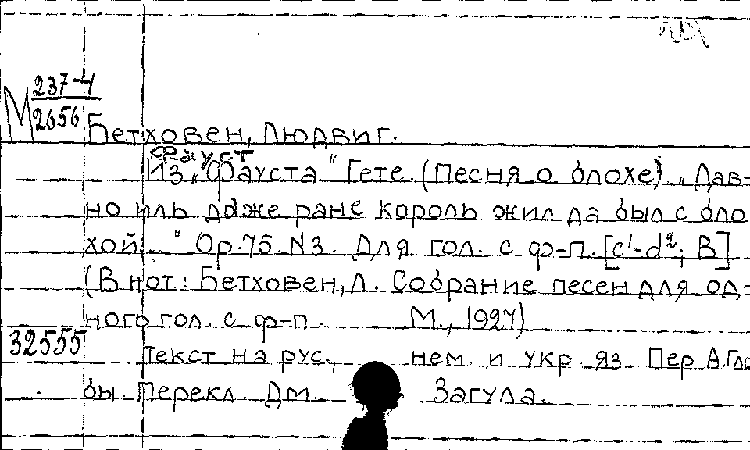 М 237-4
2656
Бетховен, Людвиг.
Фауст
Из „Фауста" Гете (Песня о блохе) „Дав-
но иль даже ране король жил да был с бло
хой..." Op.75 N3. Для гол. с ф-п. [c¹-d²; B]
(В нот: Бетховен, Л. Собрание песен для од-
ного гол. с ф-п. М., 1927)
32555
Текст на рус., нем. и укр. яз. Пер. А. Гло
бы Перекл. Дм. Загула.